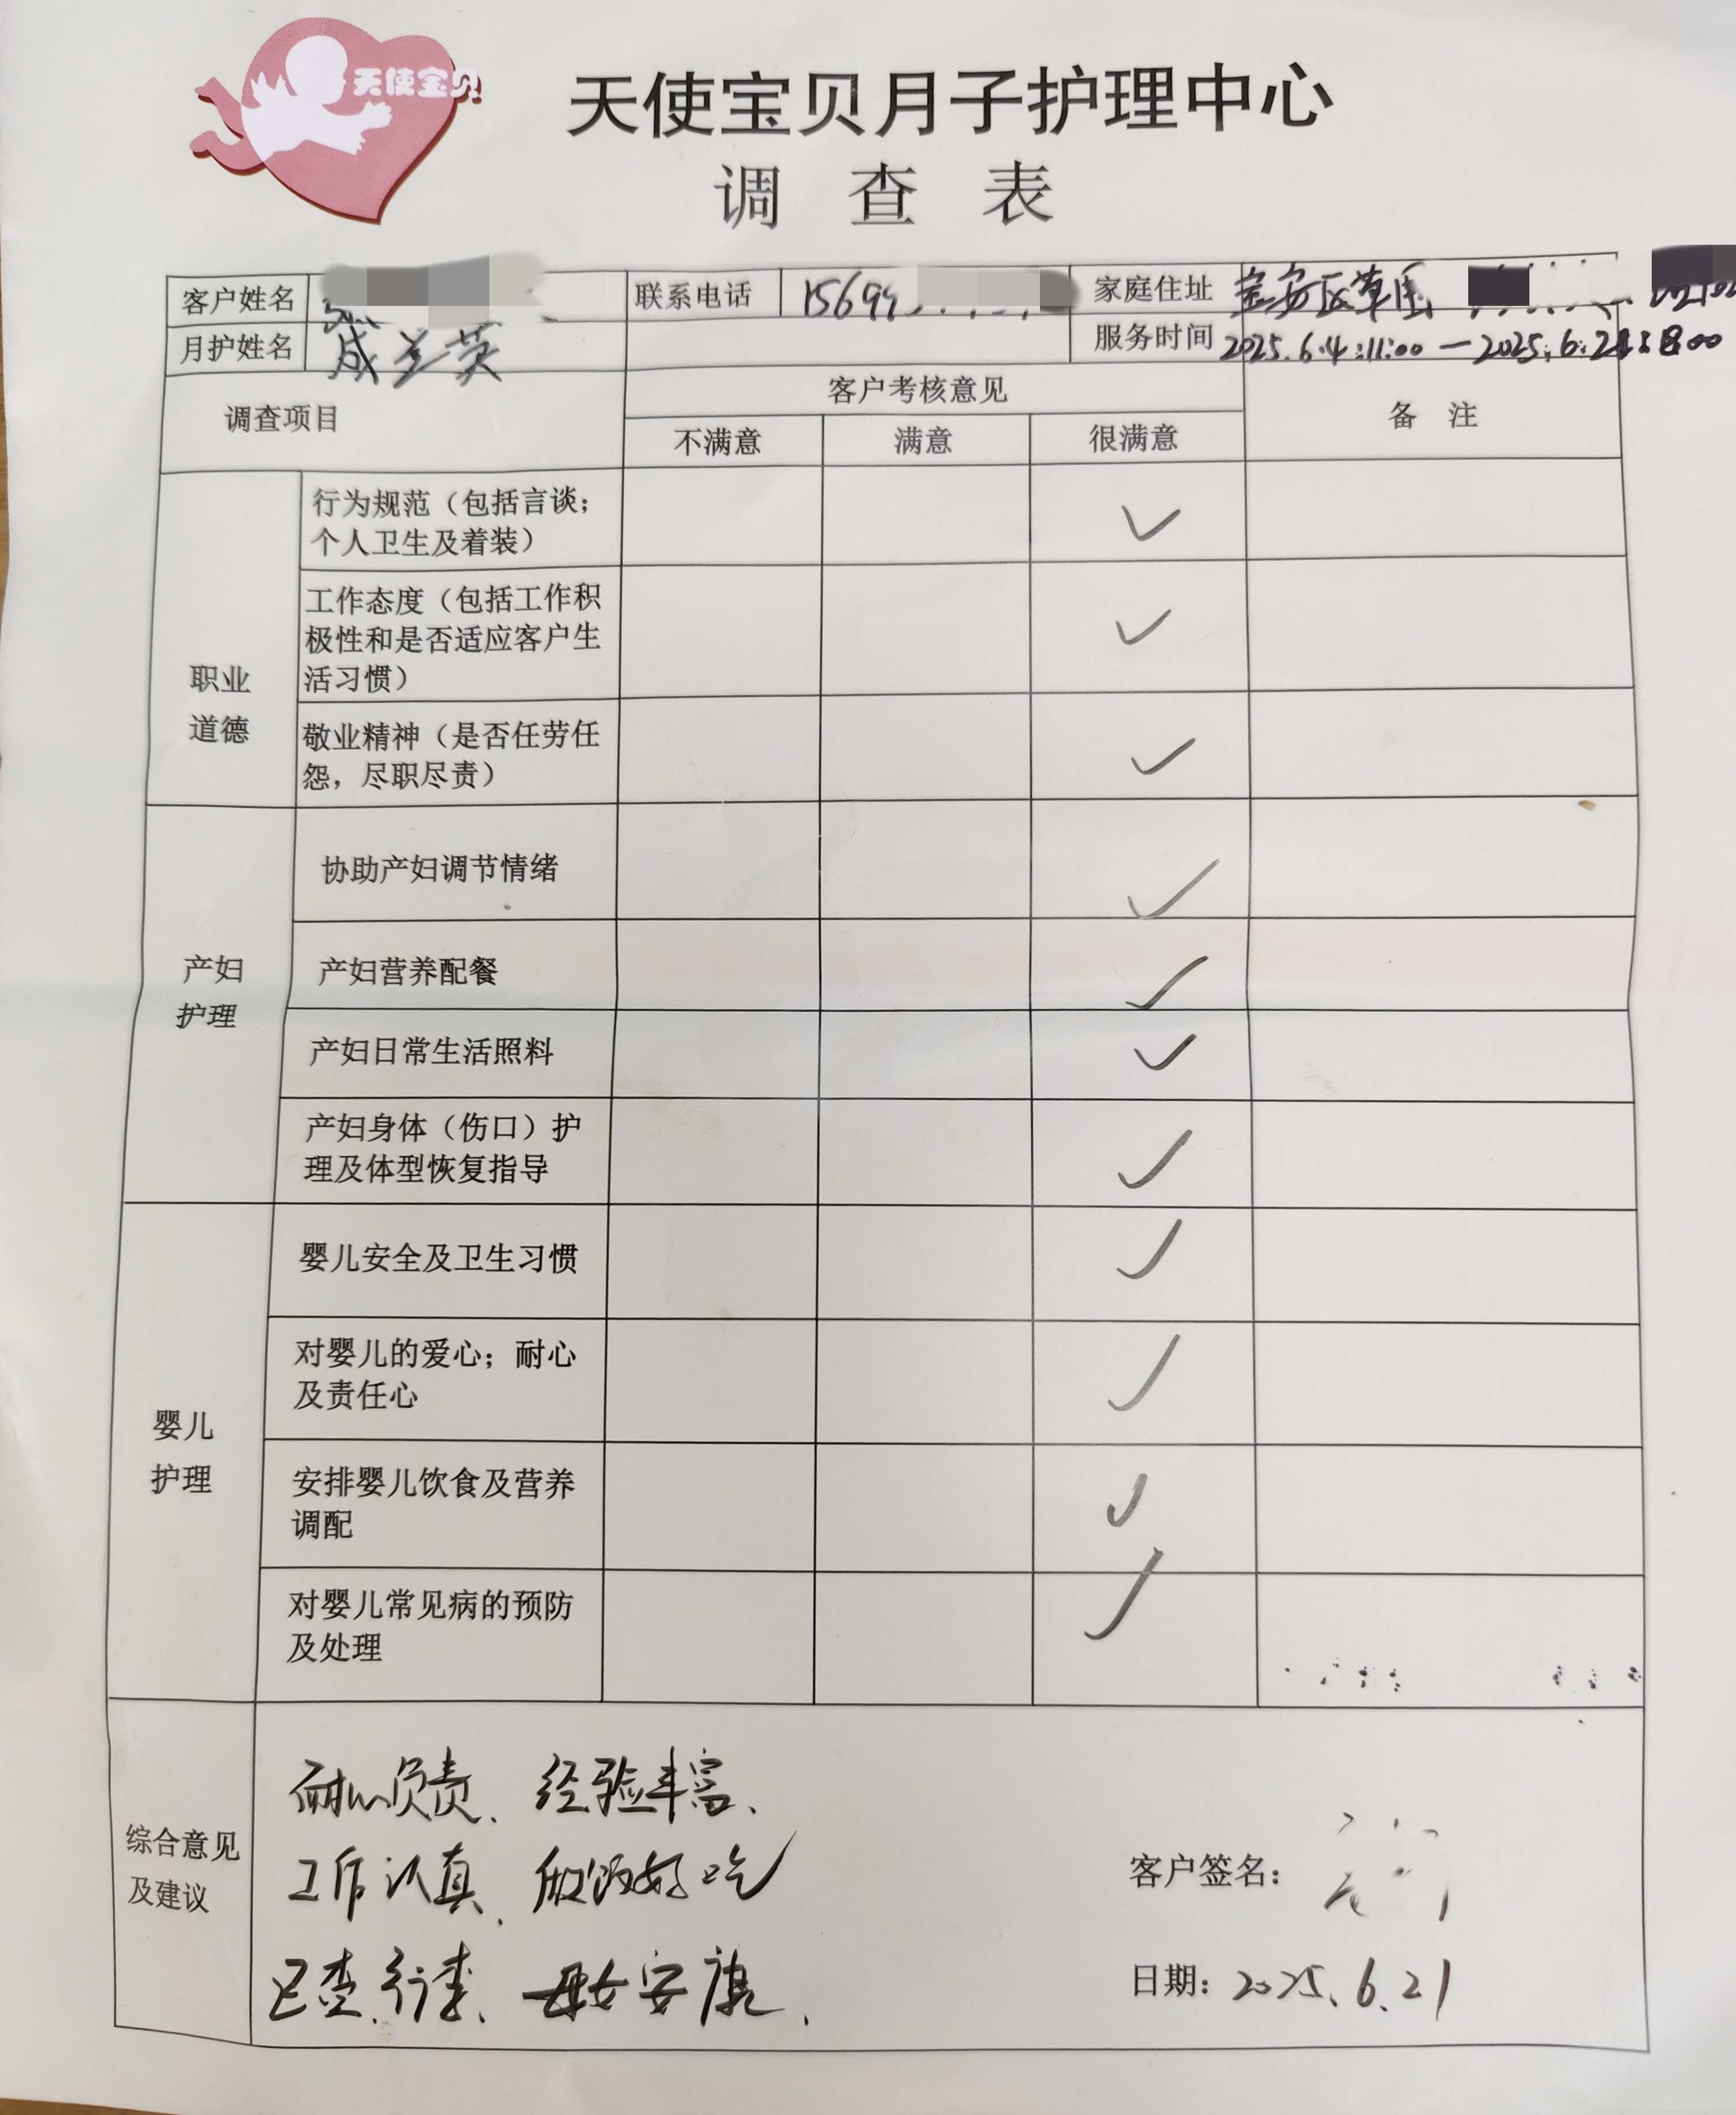 天使宝贝
天使宝贝月子护理中心
调 查 表
客户姓名 联系电话 15699 家庭住址 宝安区草围
月护姓名 成兰英 服务时间 2025.6.4:11:00 — 2025.6.21:8:00
调查项目 客户考核意见 备 注
不满意 满意 很满意
职业
道德
行为规范（包括言谈；
个人卫生及着装）
工作态度（包括工作积
极性和是否适应客户生
活习惯）
敬业精神（是否任劳任
怨，尽职尽责）
产妇
护理
协助产妇调节情绪
产妇营养配餐
产妇日常生活照料
产妇身体（伤口）护
理及体型恢复指导
婴儿
护理
婴儿安全及卫生习惯
对婴儿的爱心；耐心
及责任心
安排婴儿饮食及营养
调配
对婴儿常见病的预防
及处理
综合意见
及建议
耐心负责、经验丰富、
工作认真、做饭好吃
已查行李、母女安康.
客户签名：
日期：2025.6.21